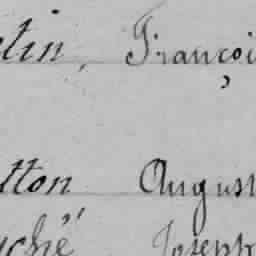 tin, Françoi
tton August
uché Joseph